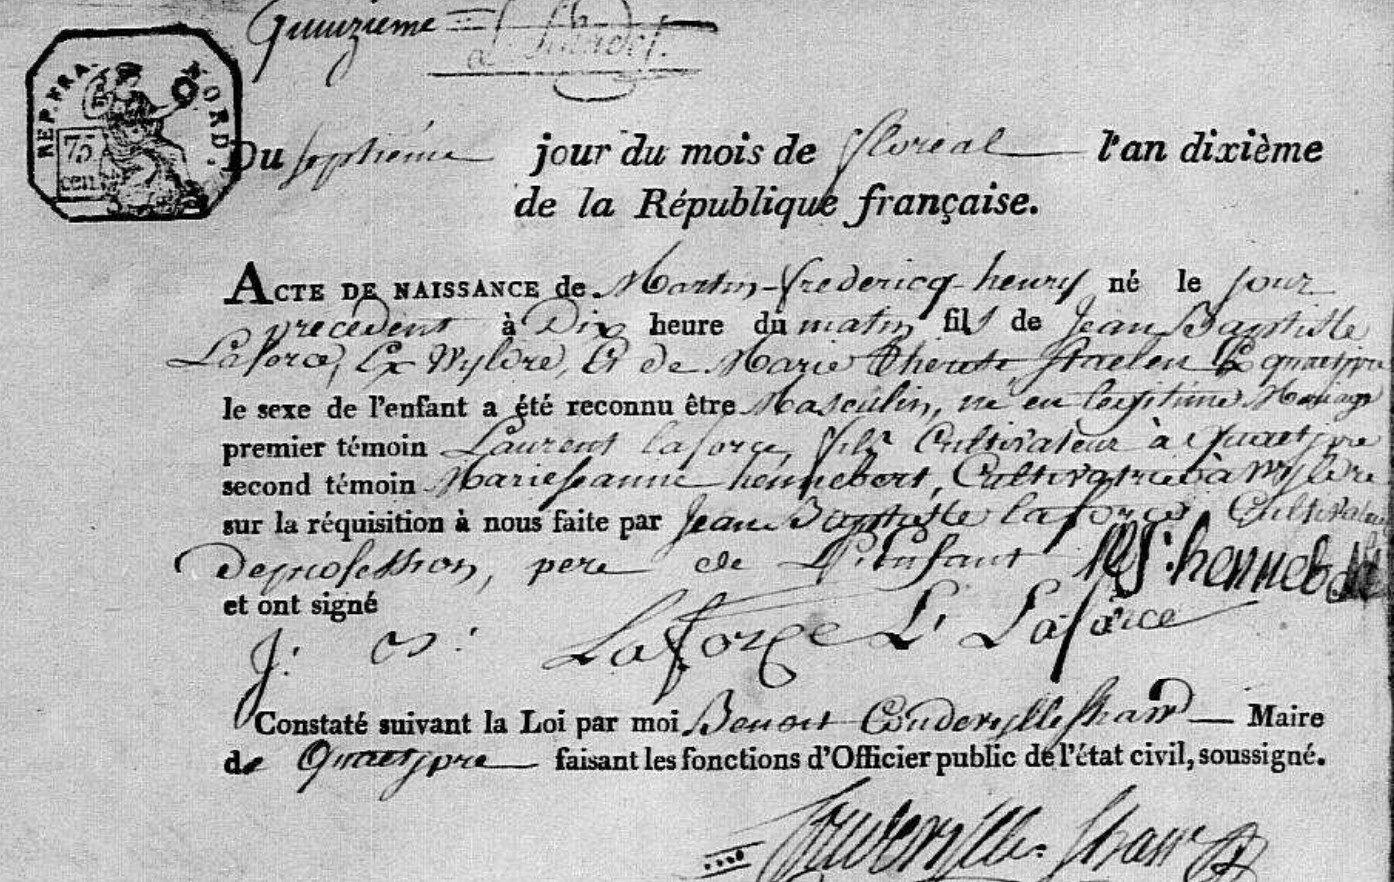 Quinzieme
REP. FRA. NORD.
75
cen.
Du septiéme jour du mois de floreal l'an dixième
de la République française.
ACTE DE NAISSANCE de Martin-fredericq-henry né le jour
precedent à Dix heure du matin fils de Jean Baptiste
Laforce, Ex Wyldre, Et de Marie therese Staelen Ex quaetypre
le sexe de l'enfant a été reconnu être Masculin, né en legitime Mariage
premier témoin Laurent laforce, fils Cultivateur à Quaetypre
second témoin Marie Jeanne hennebert, Cultivatrice à Wyldre
sur la réquisition à nous faite par Jean Baptiste laforce Cultivateur
De profession, pere de L'enfant
et ont signé
J: B: Laforce L Laforce
Constaté suivant la Loi par moi Benoit Maire
de Quaetypre faisant les fonctions d'Officier public de l'état civil, soussigné.